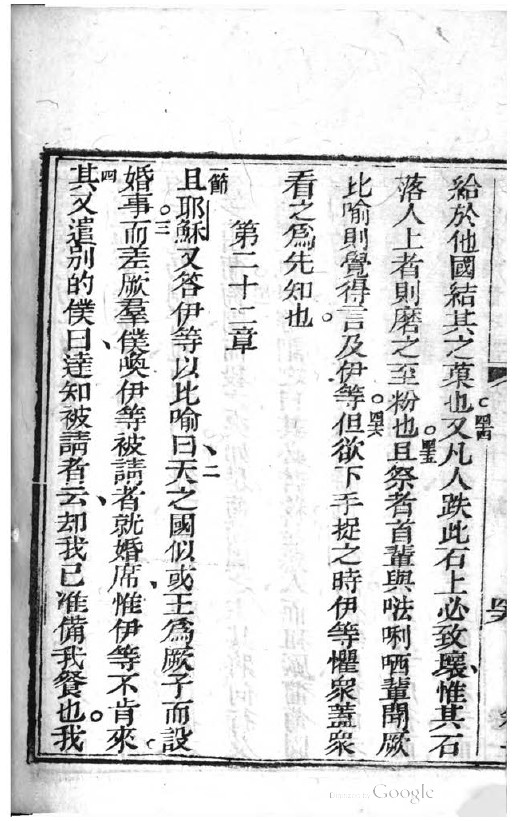 給於他國結其之菓也。四四又凡人跌此石上必致壞、惟其石
落人上者則磨之至粉也。四五且祭者首輩與𠵽唎哂輩聞厥
比喻則覺得言及伊等。四六但欲下手捉之時伊等懼衆蓋衆
看之爲先知也。
第二十二章
節且耶穌又答伊等以比喻曰、二天之國似或王爲厥子而設
婚事。三而差厥羣僕、喚伊等被請者就婚席、惟伊等不肯來。
四其又遣別的僕曰、達知被請者云、却我已准備我餐也。我
Google